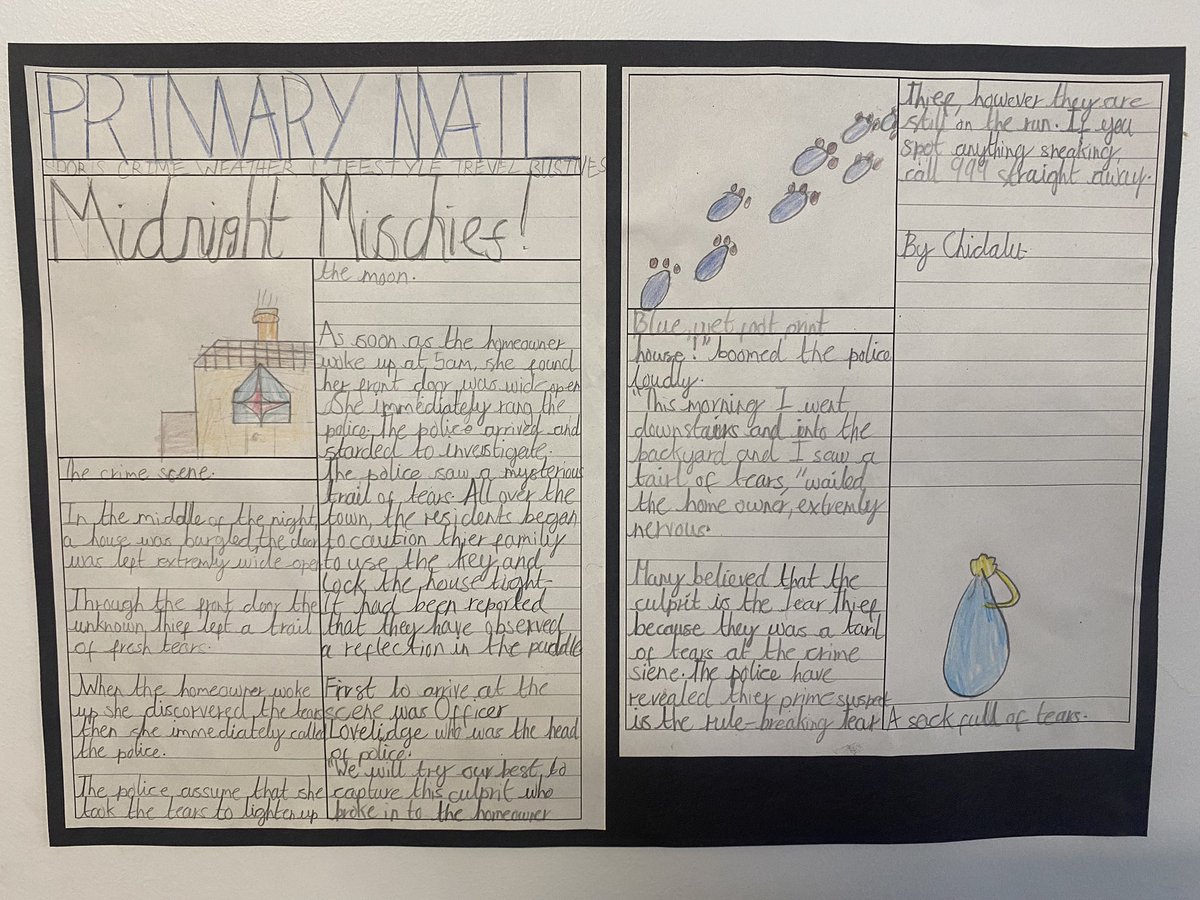 PRIMARY MAIL
CRIME WEATHER LIFESTYLE TREVEL
Midnight Mischief!
The crime scene.
In the middle of the night,
a house was burgled, the door
was left extremly wide open
Through the front door the
unknown thief left a trail
of fresh tears.
When the homeowner woke
up she discorvered the tears
then she immediately called
the police.
The police assume that she
took the tears to lighten up
the moon.
As soon as the homeowner
woke up at 5am, she found
her front door was wide open
She immediately rang the
police. The police arrived and
starded to investigate.
The police saw a mysterious
trail of tears. All over the
town, the residents began
to caution thier family
to use the key and
lock the house tight.
It had been reported
that they have observed
a reflection in the puddle
First to arrive at the
scene was Officer
Lovelidge who was the head
of police.
"We will try our best to
capture this culprit who
broke in to the homeowner
Blue wet foot print
house!" boomed the police
loudly.
"This morning I went
downstairs and into the
backyard and I saw a
tairl of tears, "wailed
the home owner, extremly
nervous.
Many believed that the
culprit is the tear thief
because they was a taril
of tears at the crime
siene. The police have
revealed thier prime suspect
is the rule-breaking tear
Thief, however they are
still on the run. If you
spot anything sneaking,
call 999 straight away.
By Chidalu
A sack full of tears.